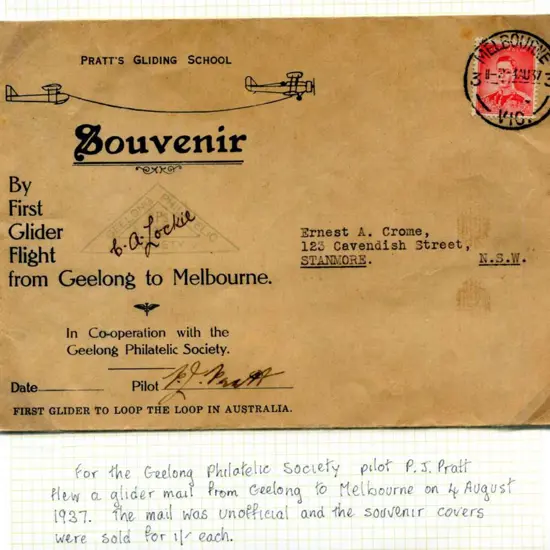 PRATT'S GLIDING SCHOOL
Souvenir
By
First
Glider
Flight
from Geelong to Melbourne.
C. A. Lockie
GEELONG PHILATELIC
SOCIETY
In Co-operation with the
Geelong Philatelic Society.
Date Pilot P. J. Pratt
FIRST GLIDER TO LOOP THE LOOP IN AUSTRALIA.
MELBOURNE
3 3
VIC.
Ernest A. Crome,
123 Cavendish Street,
STANMORE. N.S.W.
For the Geelong Philatelic Society pilot P. J. Pratt
flew a glider mail from Geelong to Melbourne on 4 August
1937. The mail was unofficial and the souvenir covers
were sold for 1/- each.